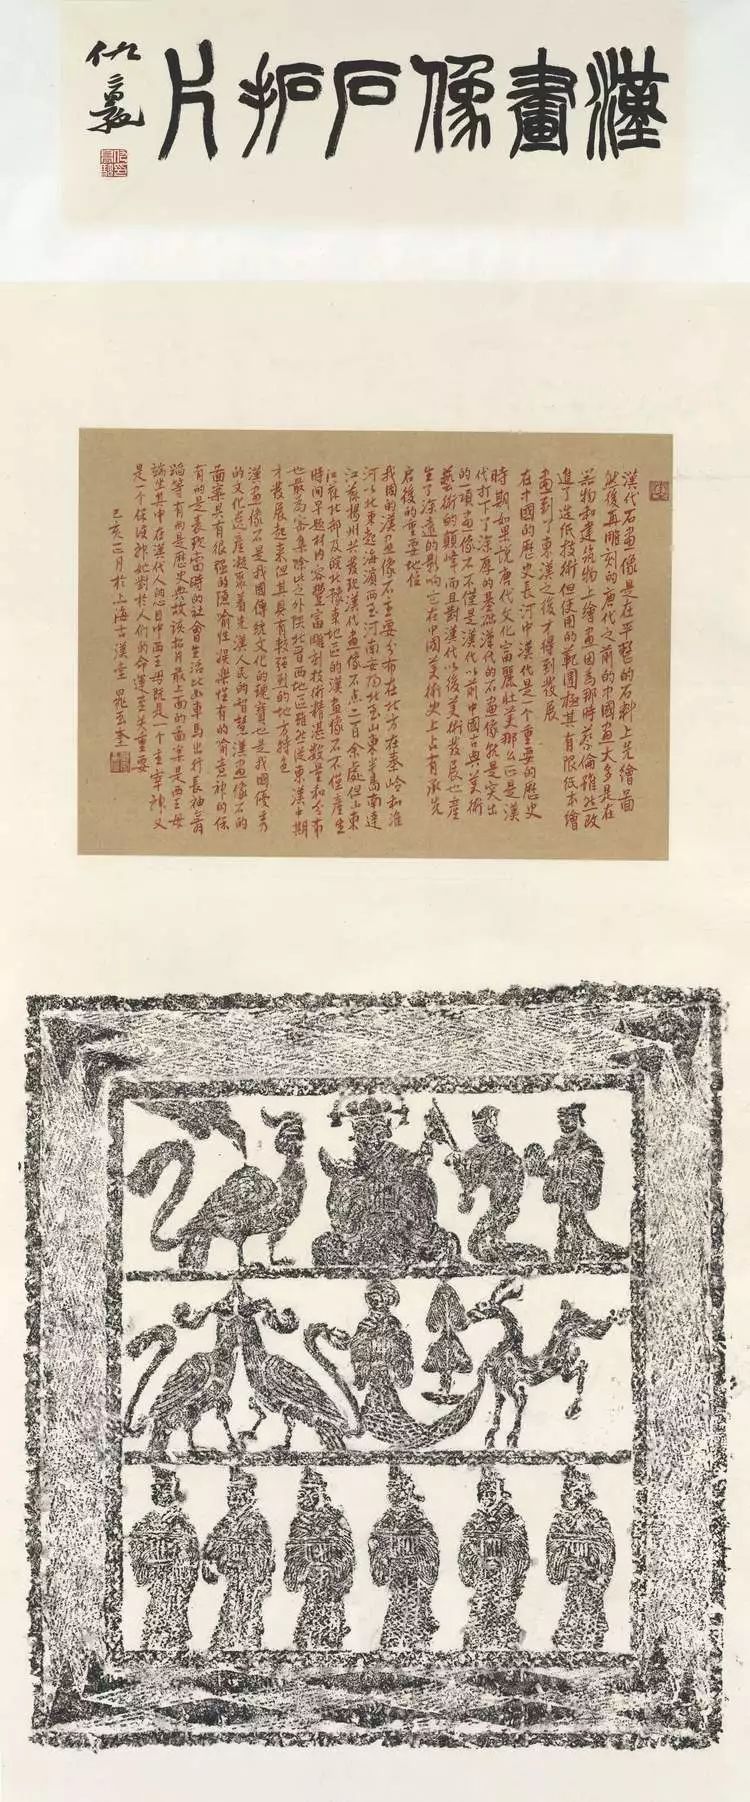 漢畫像石拓片
漢代石畫像是在平整的石料上先繪畫
然後再雕刻的唐代之前的中國畫大多是在
器物和建筑物上繪畫因為那時蔡倫雖然改
進了造紙技術但使用的範圍極其有限紙本繪
畫到了東漢之後才得到發展
在中國的歷史長河中漢代是一個重要的歷史
時期如果說唐代文化富麗壯美那么正是漢
代打下了深厚的基础漢代的石畫像就是突出
的一項畫像石不僅是漢代以前中國古典美術
藝術的巔峰而且對漢代以後美術發展也産
生了深遠的影响它在中國美術史上占有承先
启後的重要地位
我國的漢畫像石主要分布在北方在秦岭和淮
河以北東起海濱西至河南安阳北至山東半島南達
江蘇揚州共發現漢代畫像石点二百余處但山東
江蘇北部及皖北豫東地區的漢畫像石不僅産生
時間早題材内容豐富雕刻技術精湛數量和分布
也最為密集除此之外陝北晋西地區雖然從東漢中期
才發展起來但其具有較强烈的地方特色
漢畫像石是我國傳統文化的瑰寶也是我國優秀
的文化遗産凝聚着先漢人民的智慧漢畫像石的
圖案具有很强的隐喻性娛樂性有的喻意神的保
有的是表現當時的社會生活比如車馬出行長袖舞
蹈等有的是歷史典故該拓片最上面的圖案是西王母
端坐其中在漢代人的心目中西王母既是一個主宰神又
是一個保護神她對於人們的命運至关重要
己亥正月於上海古漢堂 晁玉奎